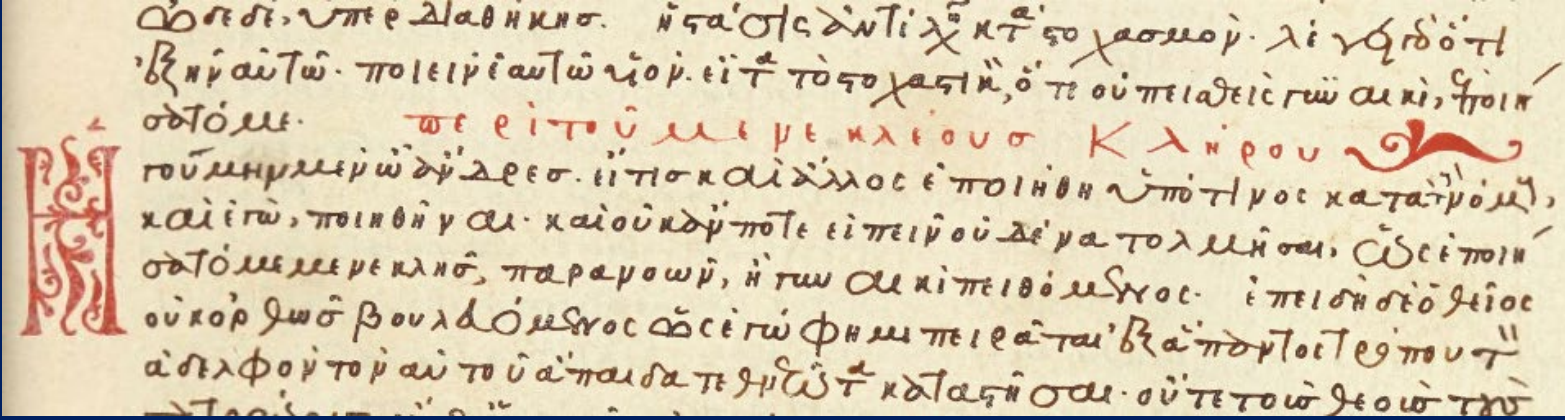 ὑπὲρ διαθήκης. ἡ στάσις ἀντίλη κτ στοχασμόν. λέγει γὰρ ὅτι
ἐξῆν αὐτῶ. ποιεῖν ἑαυτῶ υἱόν. εἶτα τὸ στοχαστικ, ὅτι οὐ πεισθεὶς γυναικὶ, ἐποιή
σατό με. περὶ τοῦ μενεκλέους κλήρου
Ἡγούμην μὲν ὦ ἄνδρες. εἴ τις καὶ ἄλλος ἐποιήθη ὑπό τινος κατὰ τοὺς νόμους,
καὶ ἐγὼ, ποιηθῆναι. καὶ οὐκ ἄν ποτε εἰπεῖν οὐδένα τολμῆσαι, ὡς ἐποιή
σατό με μενεκλῆς, παρανοῶν, ἢ γυναικὶ πειθόμενος. ἐπειδὴ δὲ ὁ θεῖος
οὐκ ὀρθῶς βουλευόμενος ὡς ἐγώ φημι πειρᾶται ἐξ ἅπαντος τρόπου τὸν
ἀδελφὸν τὸν αὐτοῦ ἄπαιδα τεθνεῶτα καταστῆσαι. οὔτε τοὺς θεοὺς τοὺς